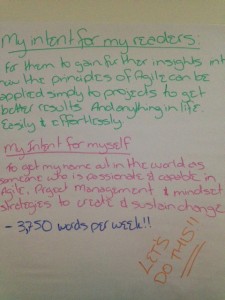 My intent for my readers:
For them to gain further insights int
how the principles of Agile can be
applied simply to projects to get
better results. And anything in life.
Easily & effortlessly.
My Intent for myself
To get my name out in the world as
someone who is passionate & capable in
Agile, Project Management & mindset
strategies to create & sustain change
- 3,750 words per week!!
LET'S
DO THIS!!